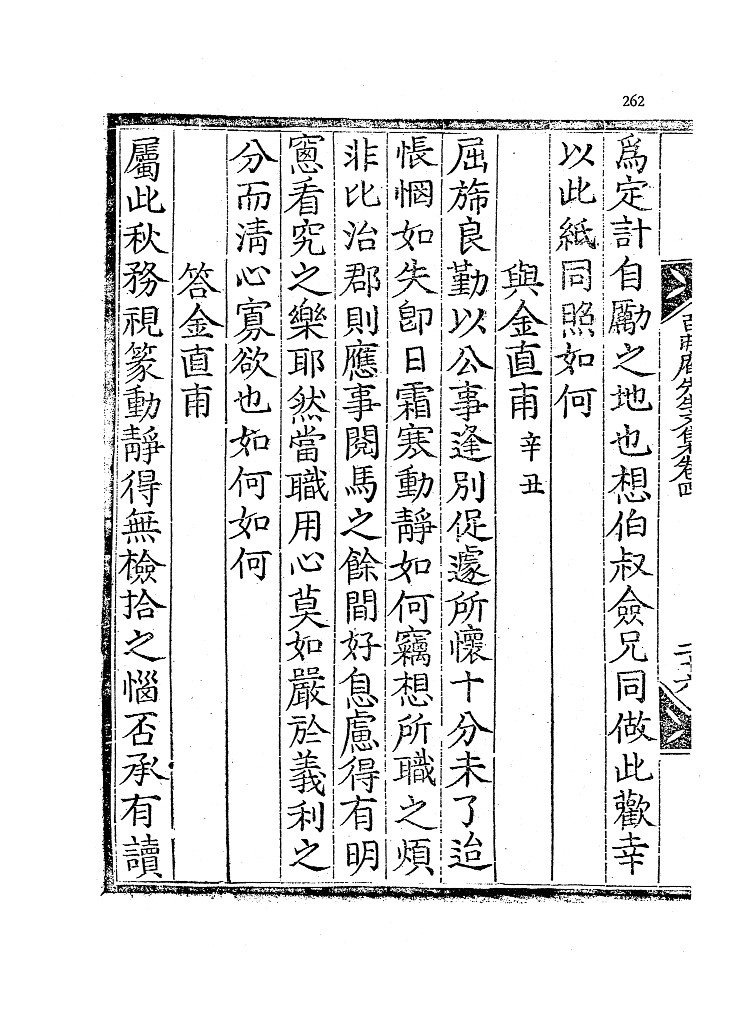 262
百弗庵先生文集卷四
二十六
爲定計自勵之地也想伯叔僉兄同做此歡幸
以此紙同照如何
與金直甫 辛丑
屈旆良勤以公事逢別促遽所懷十分未了迨
悵惘如失卽日霜寒動靜如何竊想所職之煩
非比治郡則應事閱馬之餘間好息慮得有明
窓看究之樂耶然當職用心莫如嚴於義利之
分而淸心寡欲也如何如何
答金直甫
屬此秋務視篆動靜得無檢拾之惱否承有讀